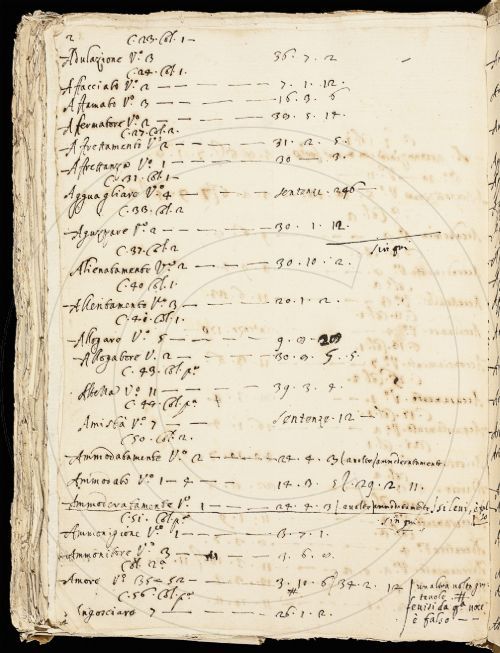 2 C. 23. Col. 1 –
Adulazione V.o 3 36. 7. 2
C. 24. Col. 1.
Affacciato V.o 2 — — — — — 7. 1. 12.
Affamato V.o 3 — — — — — 16. 3. 6
Afermatore V.o 2 — — — — 39. 5. 14.
C. 27. Col. 2.
Affrettamento V.o 2 — — — — 31. 2. 5.
Affrettanza V.o 1 — — — — 30 — 3.
C. 31. Col. 1 –
Agguagliare V.o 4 — — — sentenze. 246 –
C. 33. Col. 2
Aguzzare V.o 2 — — — — 30. 1. 12.
C. 37. Col. 2 sin qui
Alienatamente V.o 2 — — — 30. 10. 2.
C. 40 Col. 1.
Allentamento V.o 3 — — — — 20. 1. 2.
C. 41. Col. 1.
Allegare V.o 5 — — — — 9. 9.
Allegatore V.o 2 — — — 30. 9. 5. 5.
C. 43. Col. p.o
V.o 11 — — — — 39. 3. 4.
C. 44. Col. p.o
Amistà V.o 7 — — — — Sentenze. 12 –
C. 50. Col. 2.
Ammodatamente V.o 2 — — — 24. 4. 3
V.o 1 – 4 — — — 14. 3. 5 29. 2. 11.
Ammoderatamente V.o 1 — — — 24. 4. 3
C. 51. Col. p.o sin qui
Ammonigione V.o 1 — — — 3. 7. 1.
Ammonitore V.o 3 — — — 4. 6. 9.
Col. 2.a
Amore V.o 35 – 52 — — — 3. 10. 6 / 34. 2. 12 un altra volta
C. 56. Col. p.o
Angosciare 7 — — — — 26. 1. 2.
è falso — —